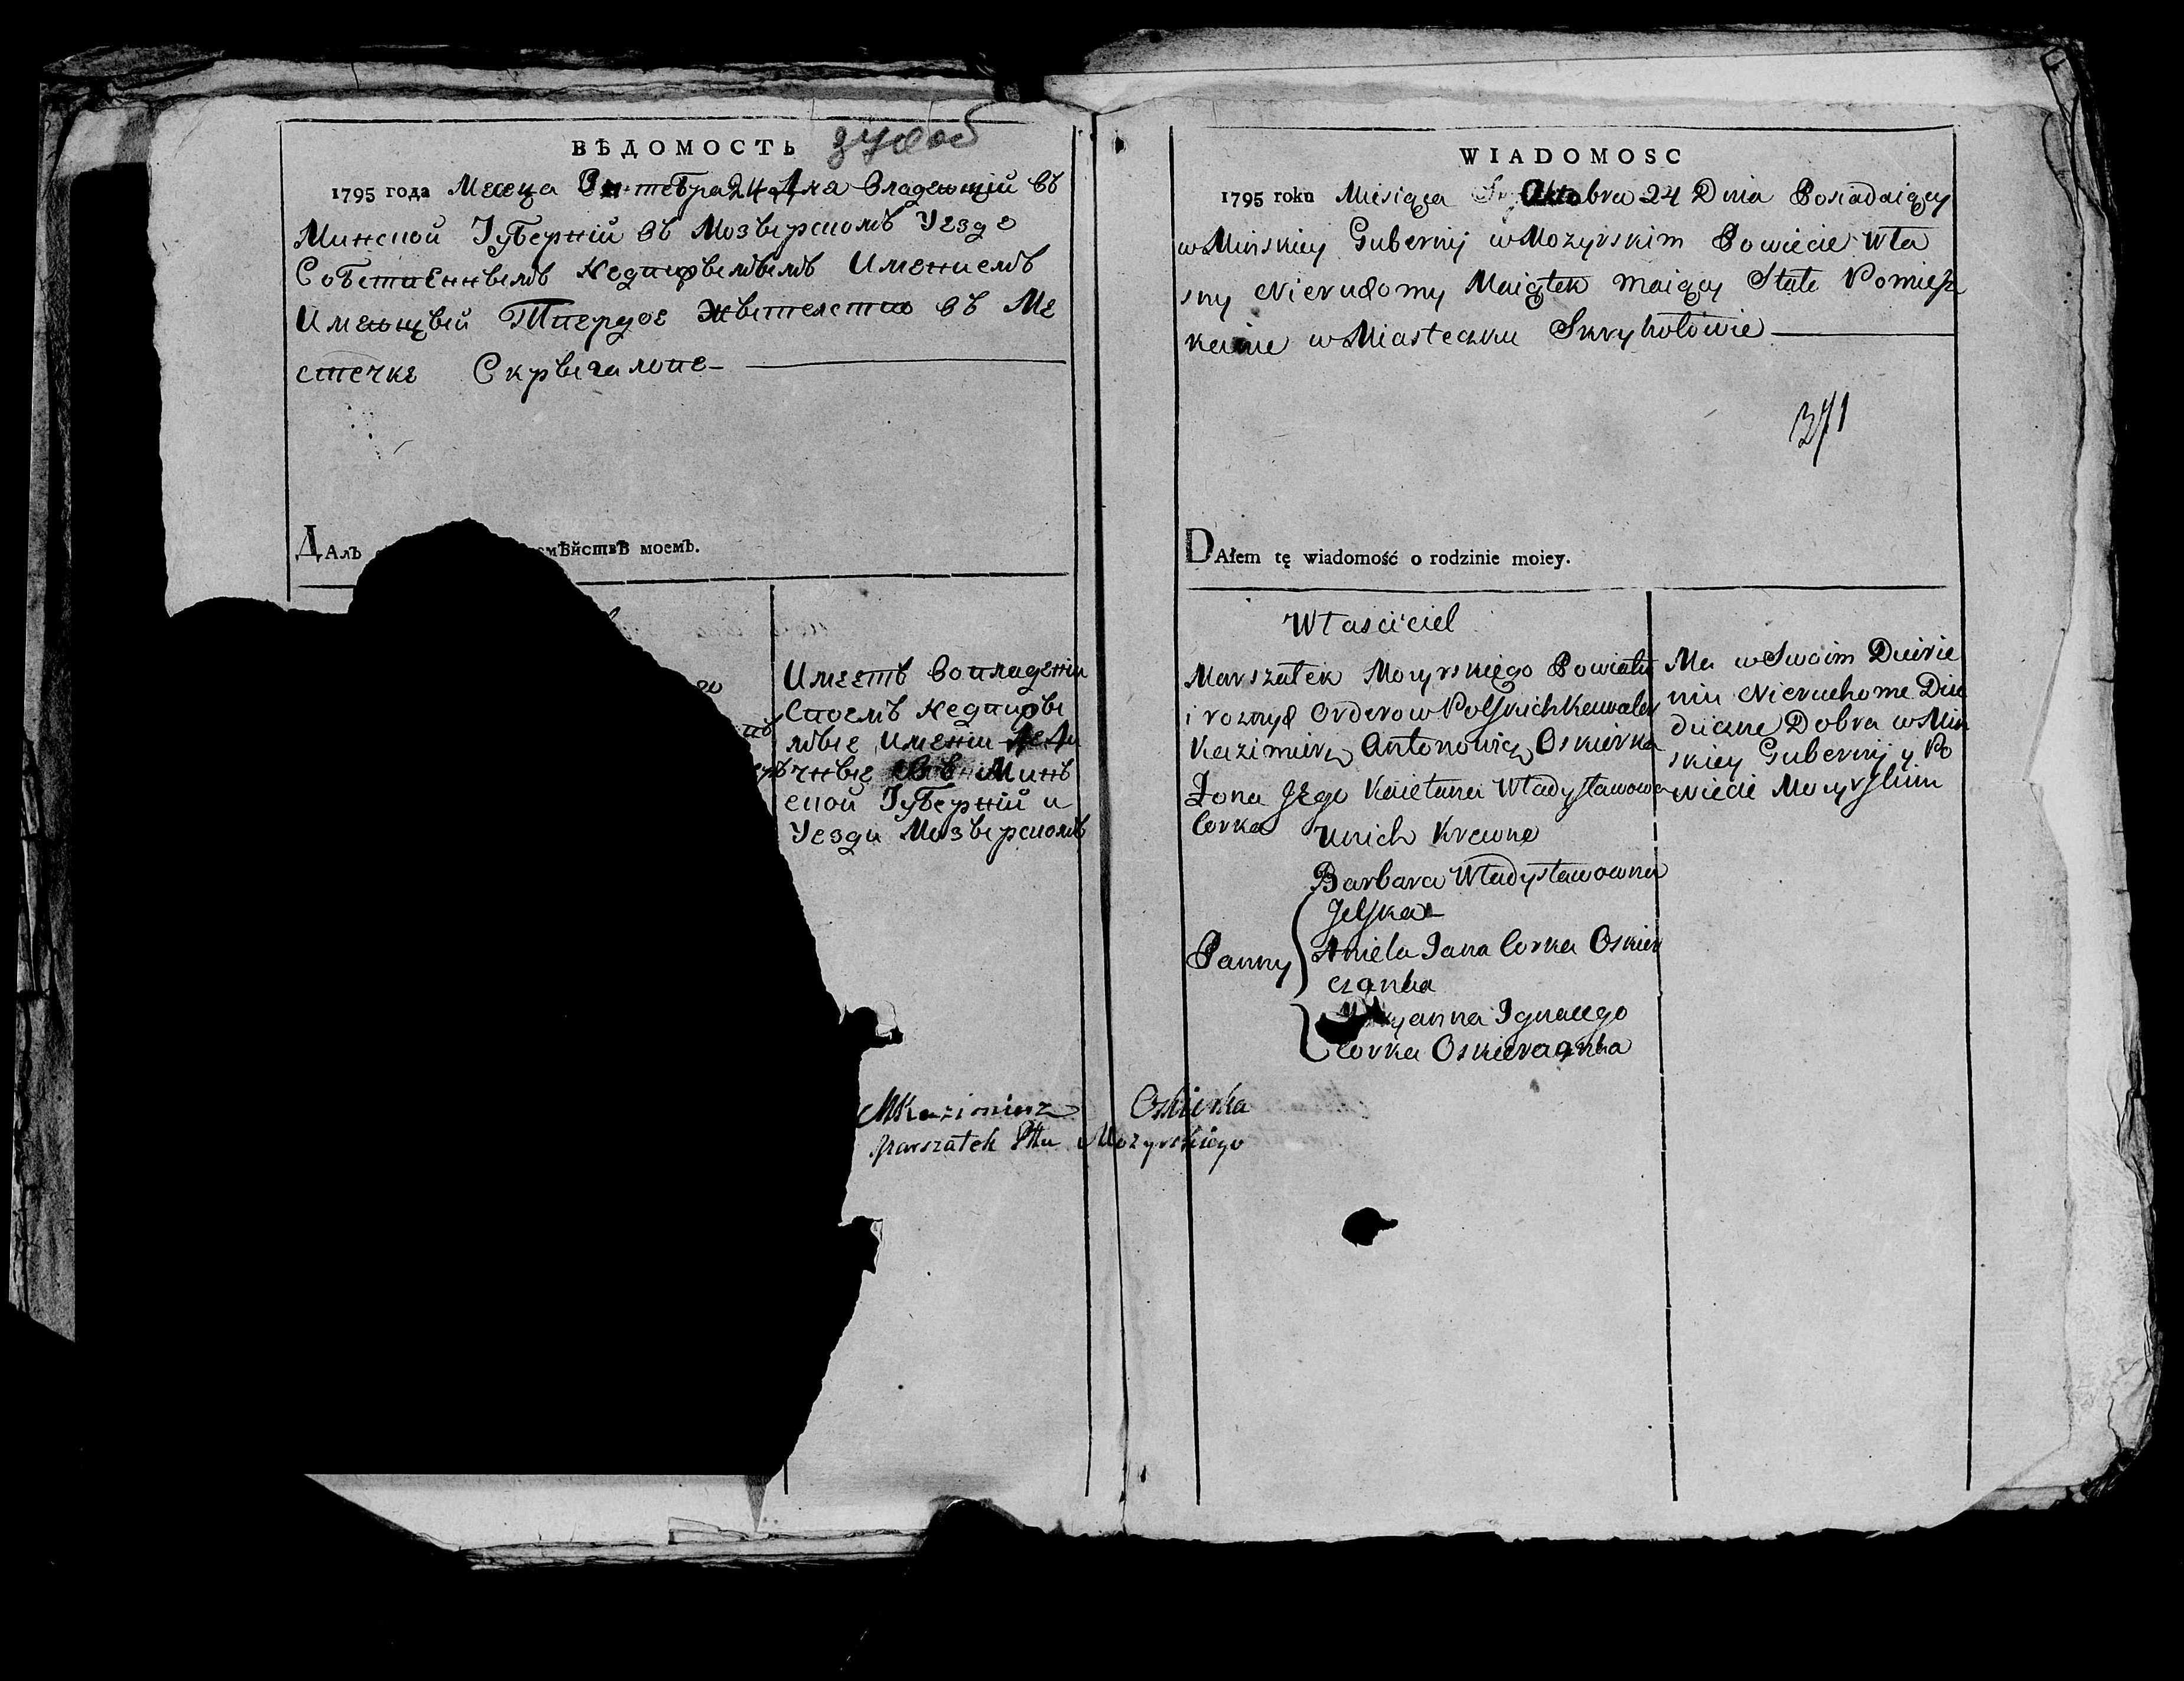 ВѢДОМОСТЬ 370 об
1795 года Месеца Октебра 24 Дня Владеющій въ
Минской Губерній въ Мозырскомъ Уезде
Собственнымъ Недвижымымъ Имениемъ
Имеющый Твердое Жытелство въ Ме
стечке Скрыгалове
ДАлъ мѣйствѣ моемъ.
Имеетъ Вовладении
Своемъ Недвижы
мые Имении Деди
чные въ Минъ
ской Губерній и
Уезди Мозырскомъ
WIADOMOSC
1795 roku Misiąca Oktobra 24 Dnia Posiadaiący
w Minskiey Gubernij w Mozyrskim Powiecie Wła
sny Nieruchomy Maiątek maiący Stałe Pomiesz
kanie w Miasteczku Skryhołowie
371
DAłem tę wiadomość o rodzinie moiey.
Własciciel
Marszałek Mozyrskiego Powiatu
i roznych Orderow Polskich Kawaler
Kazimierz Antonowicz Oskierka
Żona Jego Kaietana Władysławowa
Corka
Unich Krewne
Barbara Władysławowna
Jelska
Panny
Aniela Jana Corka Oskier
czanka
Maryanna Ignacego
Corka Oskierczanka
Ma w Swoim Dzierże
niu Nieruchome Dzie
dziczne Dobra w Min
skiey Gubernij y Po
wiecie Mozyrskim
MKazimierz Oskierka
Marszałek Pttu Mozyrskiego